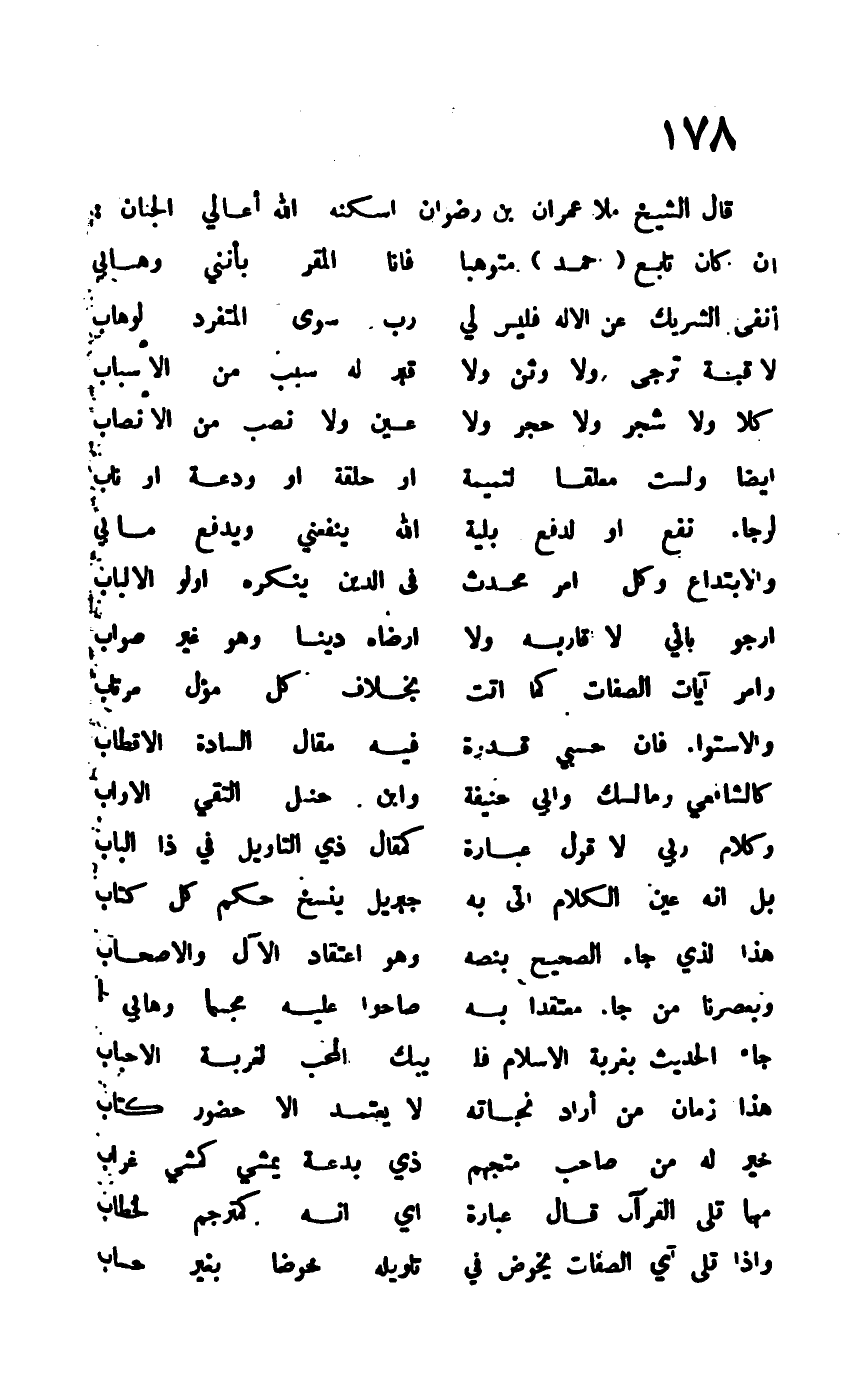 ١٧٨
قال الشيخ ملا عمران بن رضوان اسكنه الله أعالي الجنان
ان كان تابع ( حمد ) متوهبا فانا المقر بأنني وهابي
أنفى الشريك عن الاله فليس لي رب سوى المتفرد لوهاب
لا قبة ترجى ولا وثن ولا قبر له سبب من الأسباب
كلا ولا شجر ولا حجر ولا عين ولا نصب من الأنصاب
ايضا ولست معلقا لتميمة او حلقة او ودعة او ناب
لرجاء نفع او لدفع بلية الله ينفعني ويدفع مابي
والابتداع وكل امر محدث فى الدين ينكره اولو الالباب
ارجو باني لا قاربه ولا ارضاه دينا وهو غير صواب
وامر آيات الصفات كما اتت بخلاف كل مؤل مرتاب
والاستواء فان حسبي قدرة فيه مقال السادة الاقطاب
كالشافعي ومالك وابي حنيفة وابن حنبل التقي الاواب
وكلام ربي لا قول عبارة كمقال ذي التاويل في ذا الباب
بل انه عين الكلام اتى به جبريل ينسخ حكم كل كتاب
هذا لذي جاء الصحيح بنصه وهو اعتقاد الآل والاصحاب
وبعصرنا من جاء معتقدا به صاحوا عليه مجسما وهابي
جاء الحديث بغربة الاسلام فلـ يبك المحب لغربة الاحباب
هذا زمان من أراد نجاته لا يعتمد الا حضور كتاب
خير له من صاحب متجهم ذي بدعة يمشي كمشي غراب
مهما تلى القرآن قال عبارة اي انه كمترجم لخطاب
واذا تلى آي الصفات يخوض في تاويله خوضا بغير حساب